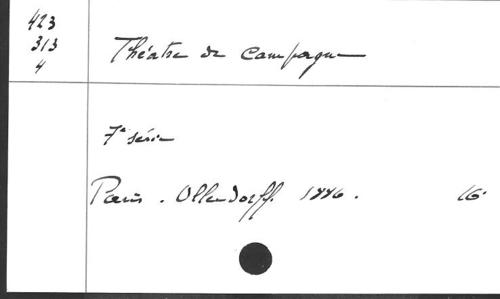 423
313
4
Théatre de Campagne
7e série
Paris. Ollendorff. 1886. 16°